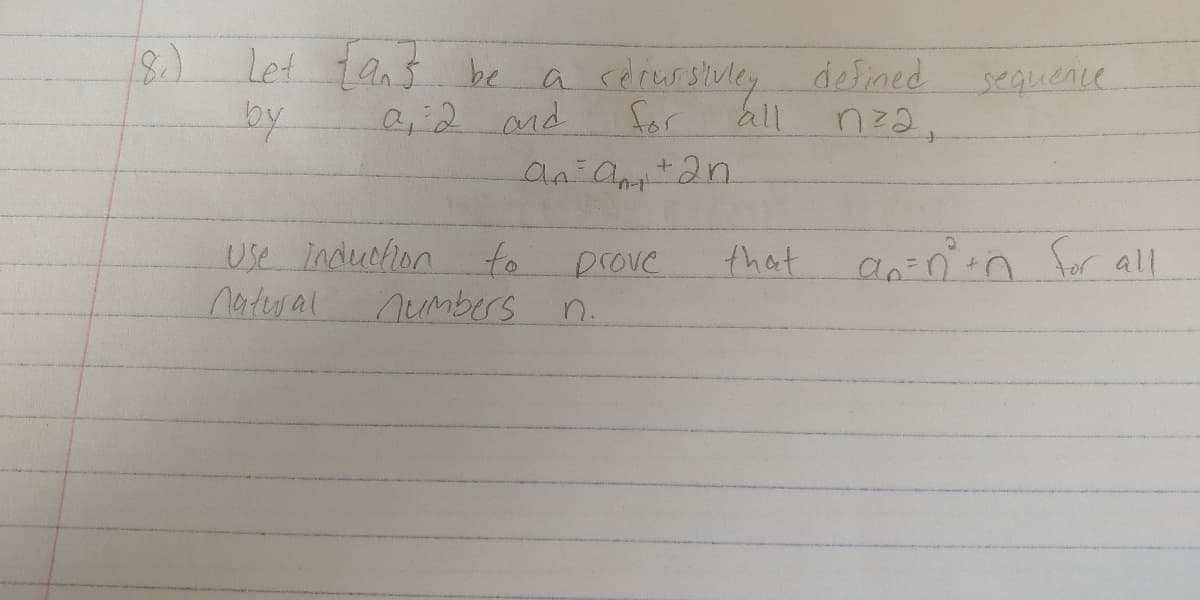 8.) Let {aₙ} be a recursivley defined sequence
by a₁=2 and for all n≥2,
aₙ=aₙ₋₁+2n
Use induction to prove that aₙ=n²+n for all
natural numbers n.